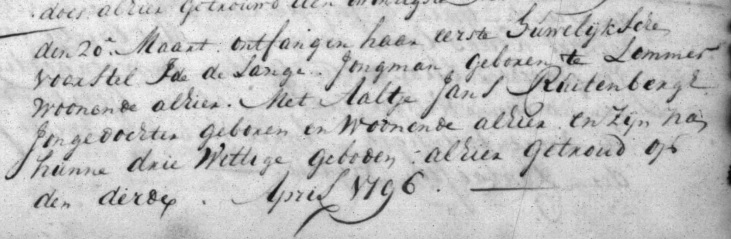 does alhier getrouwd den
den 20e Maart. ontfangen haar eerste Huwelijksche
voorstel Ide de Lange. Jongman, geboren te Lemmer
Woonende alhier. Met Aaltje Jans Ruitenbergh
Jonge dochter geboren en Woonende alhier. en zijn na
hunne drie Wettige geboden alhier getroud op
den derde. April 1796.